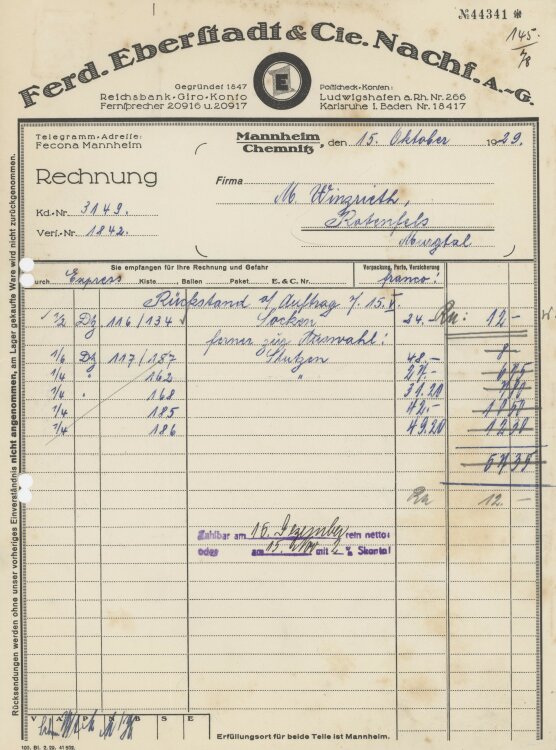 № 44341 *
145
Ferd. Eberstadt & Cie. Nachf. A.-G.
E
Gegründet 1847
Reichsbank-Giro-Konto
Fernsprecher 20916 u. 20917
Postscheck-Konten:
Ludwigshafen a. Rh. Nr. 266
Karlsruhe i. Baden Nr. 18417
Telegramm-Adresse:
Fecona Mannheim
Mannheim
Chemnitz, den 15. Oktober 1929.
Rechnung
Firma
M. Winzrieth,
Rotenfels
Murgtal
Kd.-Nr. 3149.
Verf.-Nr. 1842.
Sie empfangen für Ihre Rechnung und Gefahr
Verpackung, Porto, Versicherung
durch Express Kiste Ballen Paket E. & C. Nr. franco!
Rückstand a/ Auftrag v. 15. V.
1/2 Dz 116/134 Socken 24. Rm: 12 -
ferner zur Auswahl:
1/6 Dz 117/157 Stutzen 48.- 8
1/4 " 162 " 27.- 6 75
1/4 " 168 31.20 7 80
1/4 185 42.- 10 50
1/4 186 49.20 12 30
57 35
Rm 12. -
Zahlbar am 16. Dezember rein netto:
oder am 15. Nov mit 2 % Skonto!
V A P N B S E
Erfüllungsort für beide Teile ist Mannheim.
Rücksendungen werden ohne unser vorheriges Einverständnis nicht angenommen, am Lager gekaufte Ware wird nicht zurückgenommen.